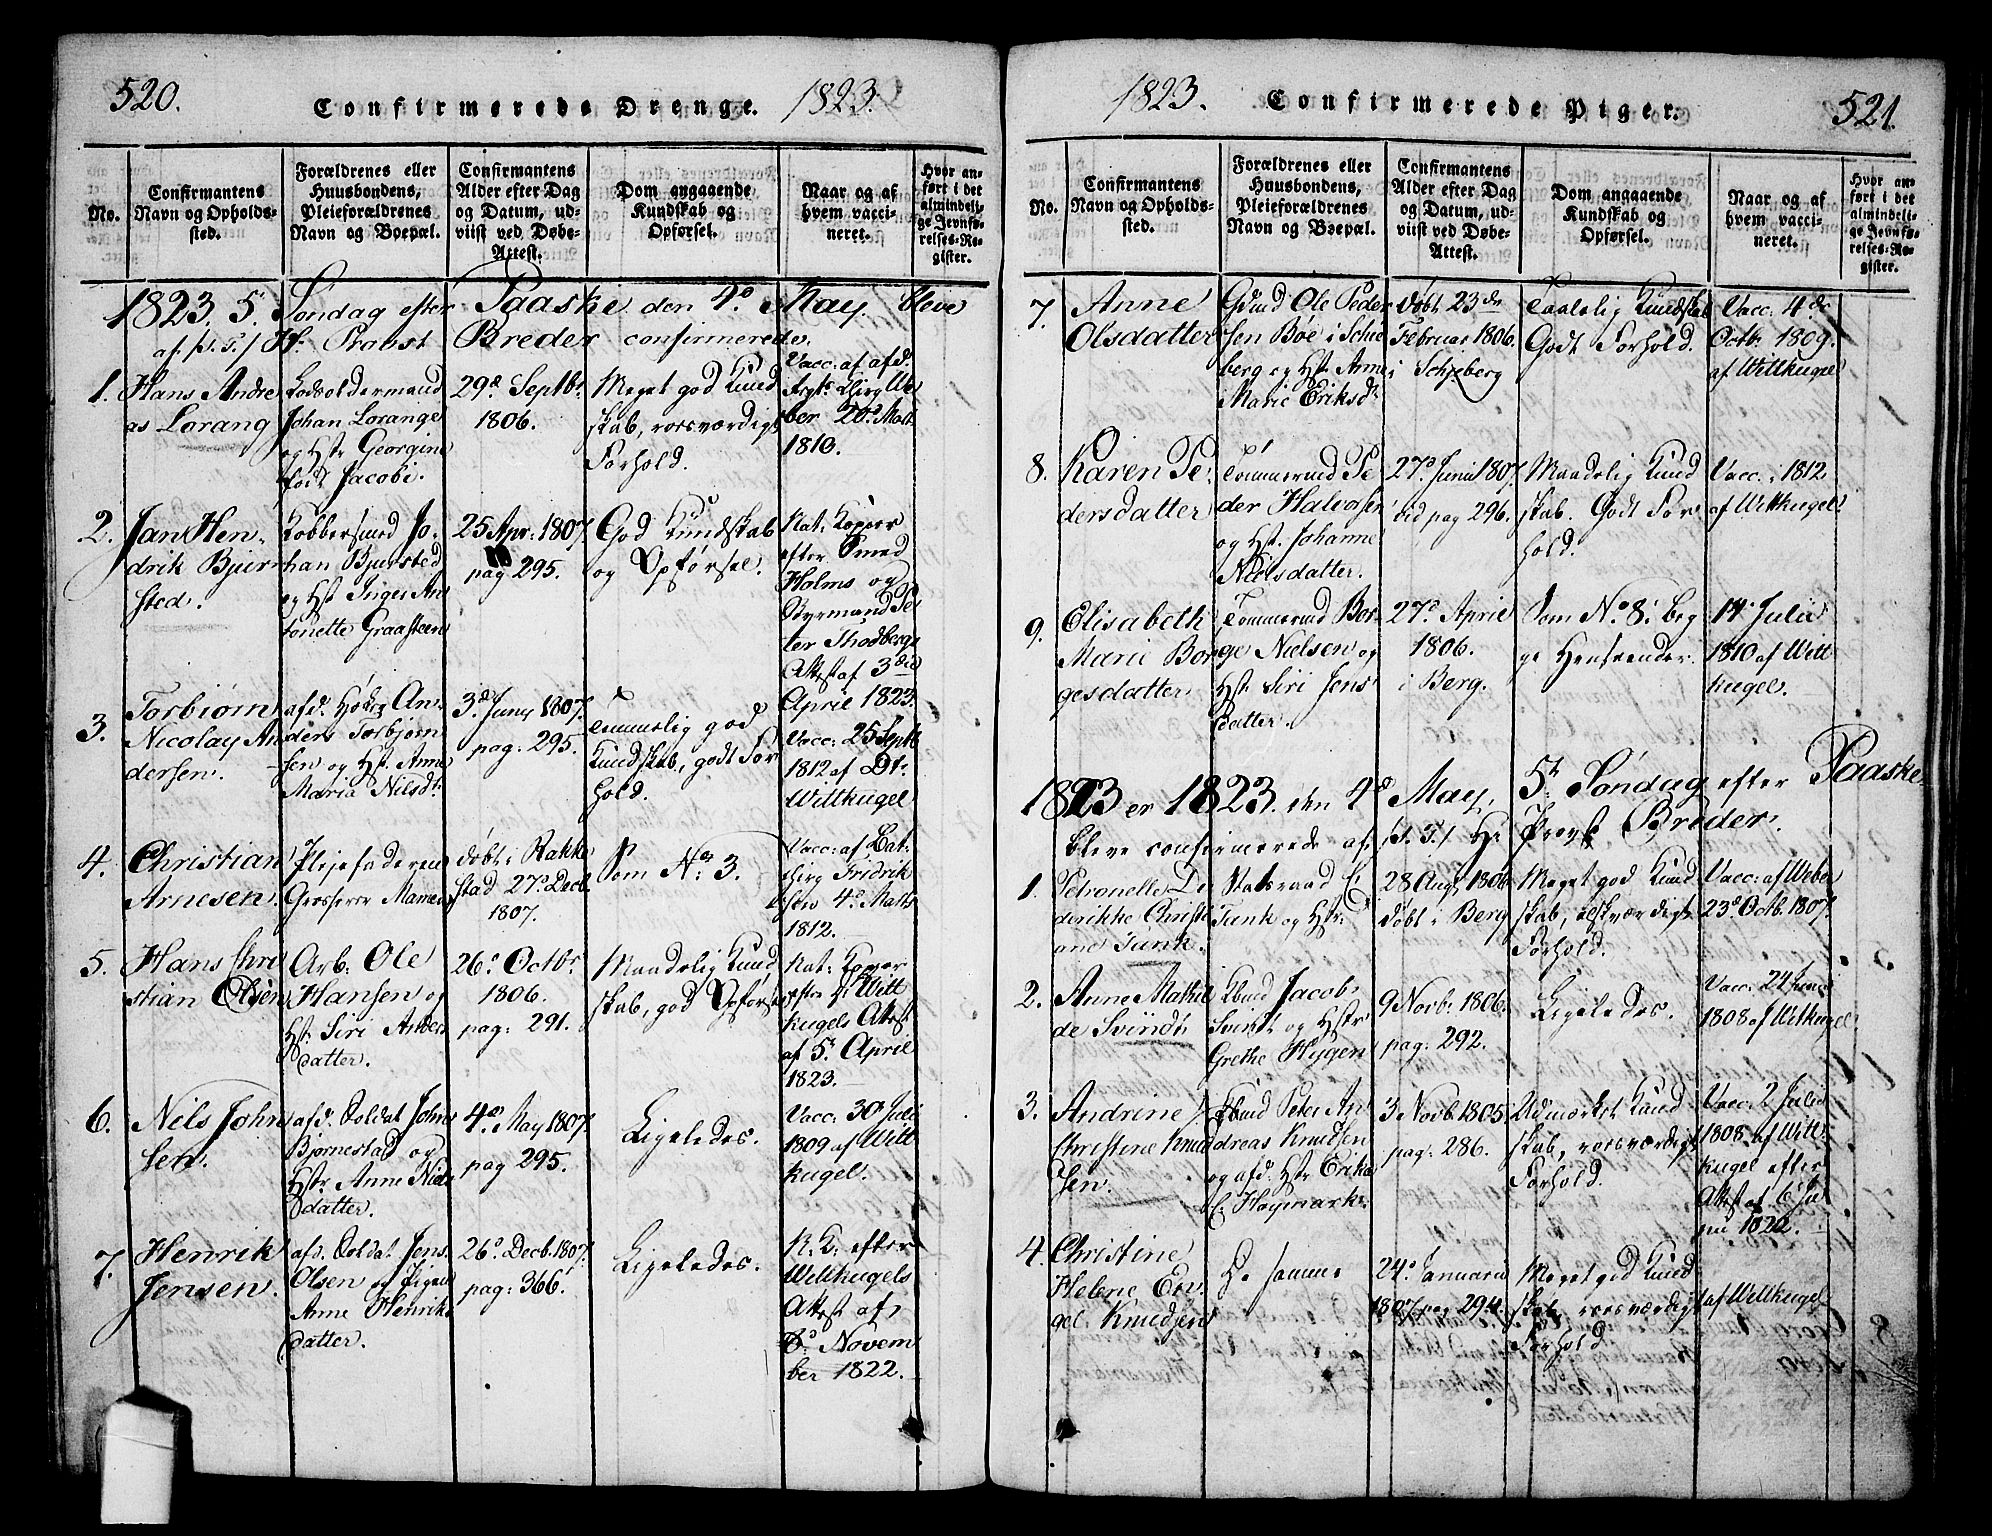 520.
Confirmerede Drenge. 1823.
No.
Confirmantens
Navn og Opholds-
sted.
Forældrenes eller
Huusbondens,
Pleieforældrenes
Navn og Boepæl.
Confirmantens
Alder efter Dag
og Datum, ud-
viist ved Døbe-
Attest.
Dom angaaende
Kundskab og
Opførsel.
Naar og af
hvem vacci-
neret.
Hvor an-
ført i det
almindeli-
ge Jevnfø-
relses-Re-
gister.
1823. 5. Søndag efter Paaske den 4de May bleve
af Hr. Provst Breder confirmerede.
1.
Hans Andre
as Lorang
Lodsoldermand
Johan Lorange
og Hstr Georgine
født Jacobi.
29d Septbr
1806.
Meget god Kund
skab, roesværdigt
Forhold.
Vacc: af afd.
ber 20d Marts
1810.
2.
Jan Hen
drik Bjur
sted.
Kobbersmed Jo-
han Bjursted
og Hst Inger An
tonette Graasteen
25 Apr: 1807.
pag 295.
God Kundskab
og Opførsel.
Nat: Kopper
efter Smed
Holms og
Styrmand Pe
ter Thodbergs
Attest af 3die
April 1823.
3.
Torbiørn
Nicolay An
dersen.
afd. Høker An
ders Torbjørn
sen og Hst. Anne
Maria Nilsdr
3d Juny 1807.
pag: 295.
Temmelig god
Kundskab, godt For
hold.
Vacc: 25 Septb
1812 af Dr.
Wittkugel
4.
Christian
Arnesen.
Plejefaderen
Grosserer Mamen
døbt i Rakke
stad 27d Decb.
1807.
Som No 3.
Vacc: af Cat
hrg Fridrik
sen 4d Marts
1812.
5.
Hans Chri
stian Olsen
Arb: Ole
Hansen og
Hst Siri Anders
datter.
26d Octbr
1806.
pag: 291.
Maadelig Kund
skab, god Opførsel
Nat: Koper
efter Witt
kugels Attest
af 5t April
1823.
6.
Nils John
sen.
afd. Soldat John
Bjørnestad og
Hstr Anne Niels
datter.
4de May 1807.
pag 295.
Ligeledes.
Vacc: 30 Juli
1809 af Witt
kugel.
7.
Henrik
Jensen.
afd. Soldat Jens
Olsen og Pigen
Anne Henriks
datter.
26d Decb. 1807.
pag: 366.
Ligeledes.
N. K: efter
Wittkugels
Attest af
Novem
ber 1822.
1823. Confirmerede Piger. 521.
No.
Confirmantens
Navn og Opholds-
sted.
Forældrenes eller
Huusbondens,
Pleieforældrenes
Navn og Boepæl.
Confirmantens
Alder efter Dag
og Datum, ud-
viist ved Døbe-
Attest.
Dom angaaende
Kundskab og
Opførsel.
Naar og af
hvem vacci-
neret.
Hvor an-
ført i det
almindeli-
ge Jevnfø-
relses-Re-
gister.
7.
Anne
Olsdatter
Gbmd Ole Peder
sen Bøe i Schie
berg og Hst Anne
Marie Eriksdr
døbt 23de
Februar 1806.
i Schjeberg
Taalelig Kundskab
Godt Forhold.
Vacc: 4de
Octb. 1809.
af Wittkugel
8.
Karen Pe
dersdatter
Tømmermd Pe
der Halvorsen
og Hst. Johanne
Nielsdatter.
27d Junii 1807.
vid pag 296.
Maadelig Kund
skab. Godt For
hold.
Vacc: i 1812
af Wittkugel
9.
Elisabeth
Marie Bor
gesdatter
Tømmermd Bor-
ge Nielsen og
Hst Siri Jens
datter.
27d Aprie
1806.
i Berg.
Som No 8. i beg
ge Henseender.
14 Julii
1810 af Witt
kugel.
1823 er 1823. den 4d May, 5t Søndag efter Paaske
bleve confirmerede af Hr Provst Breder.
1.
Petronelle De
derikke Christi
ane Tank
Statsraad C
Tank og Hstr:
28 Aug: 1806
døbt i Berg
Meget god Kund
skab, elskværdigt
Forhold.
Vacc: af Weber
23d Octb. 1807.
2.
Anne Mathil
de Svindt
Kbmd Jacob
Svindt og Hstr
Grethe Hygen
9 Novb: 1806.
pag: 292.
Ligeledes.
Vacc: 24 Juni
1808 af Wittkugel
3.
Andrine
Christine Knud
sen.
Kbmd Peter An
dreas Knudsen
og afd. Hstr Erike
C. Høymark.
3 Novb. 1805.
pag: 286.
Udmerket Kund
skab, roesværdigt
Forhold.
Vacc: 2 Julii
1808 af Witt
kugel efter
Attest af 6 Ju
nii 1822.
4.
Christine
Helene En
gel Knudsen
De samme
24d Januarii
1807 pag 294.
Meget god Kund
skab, roesværdigt
Forhold
af Wittkugel